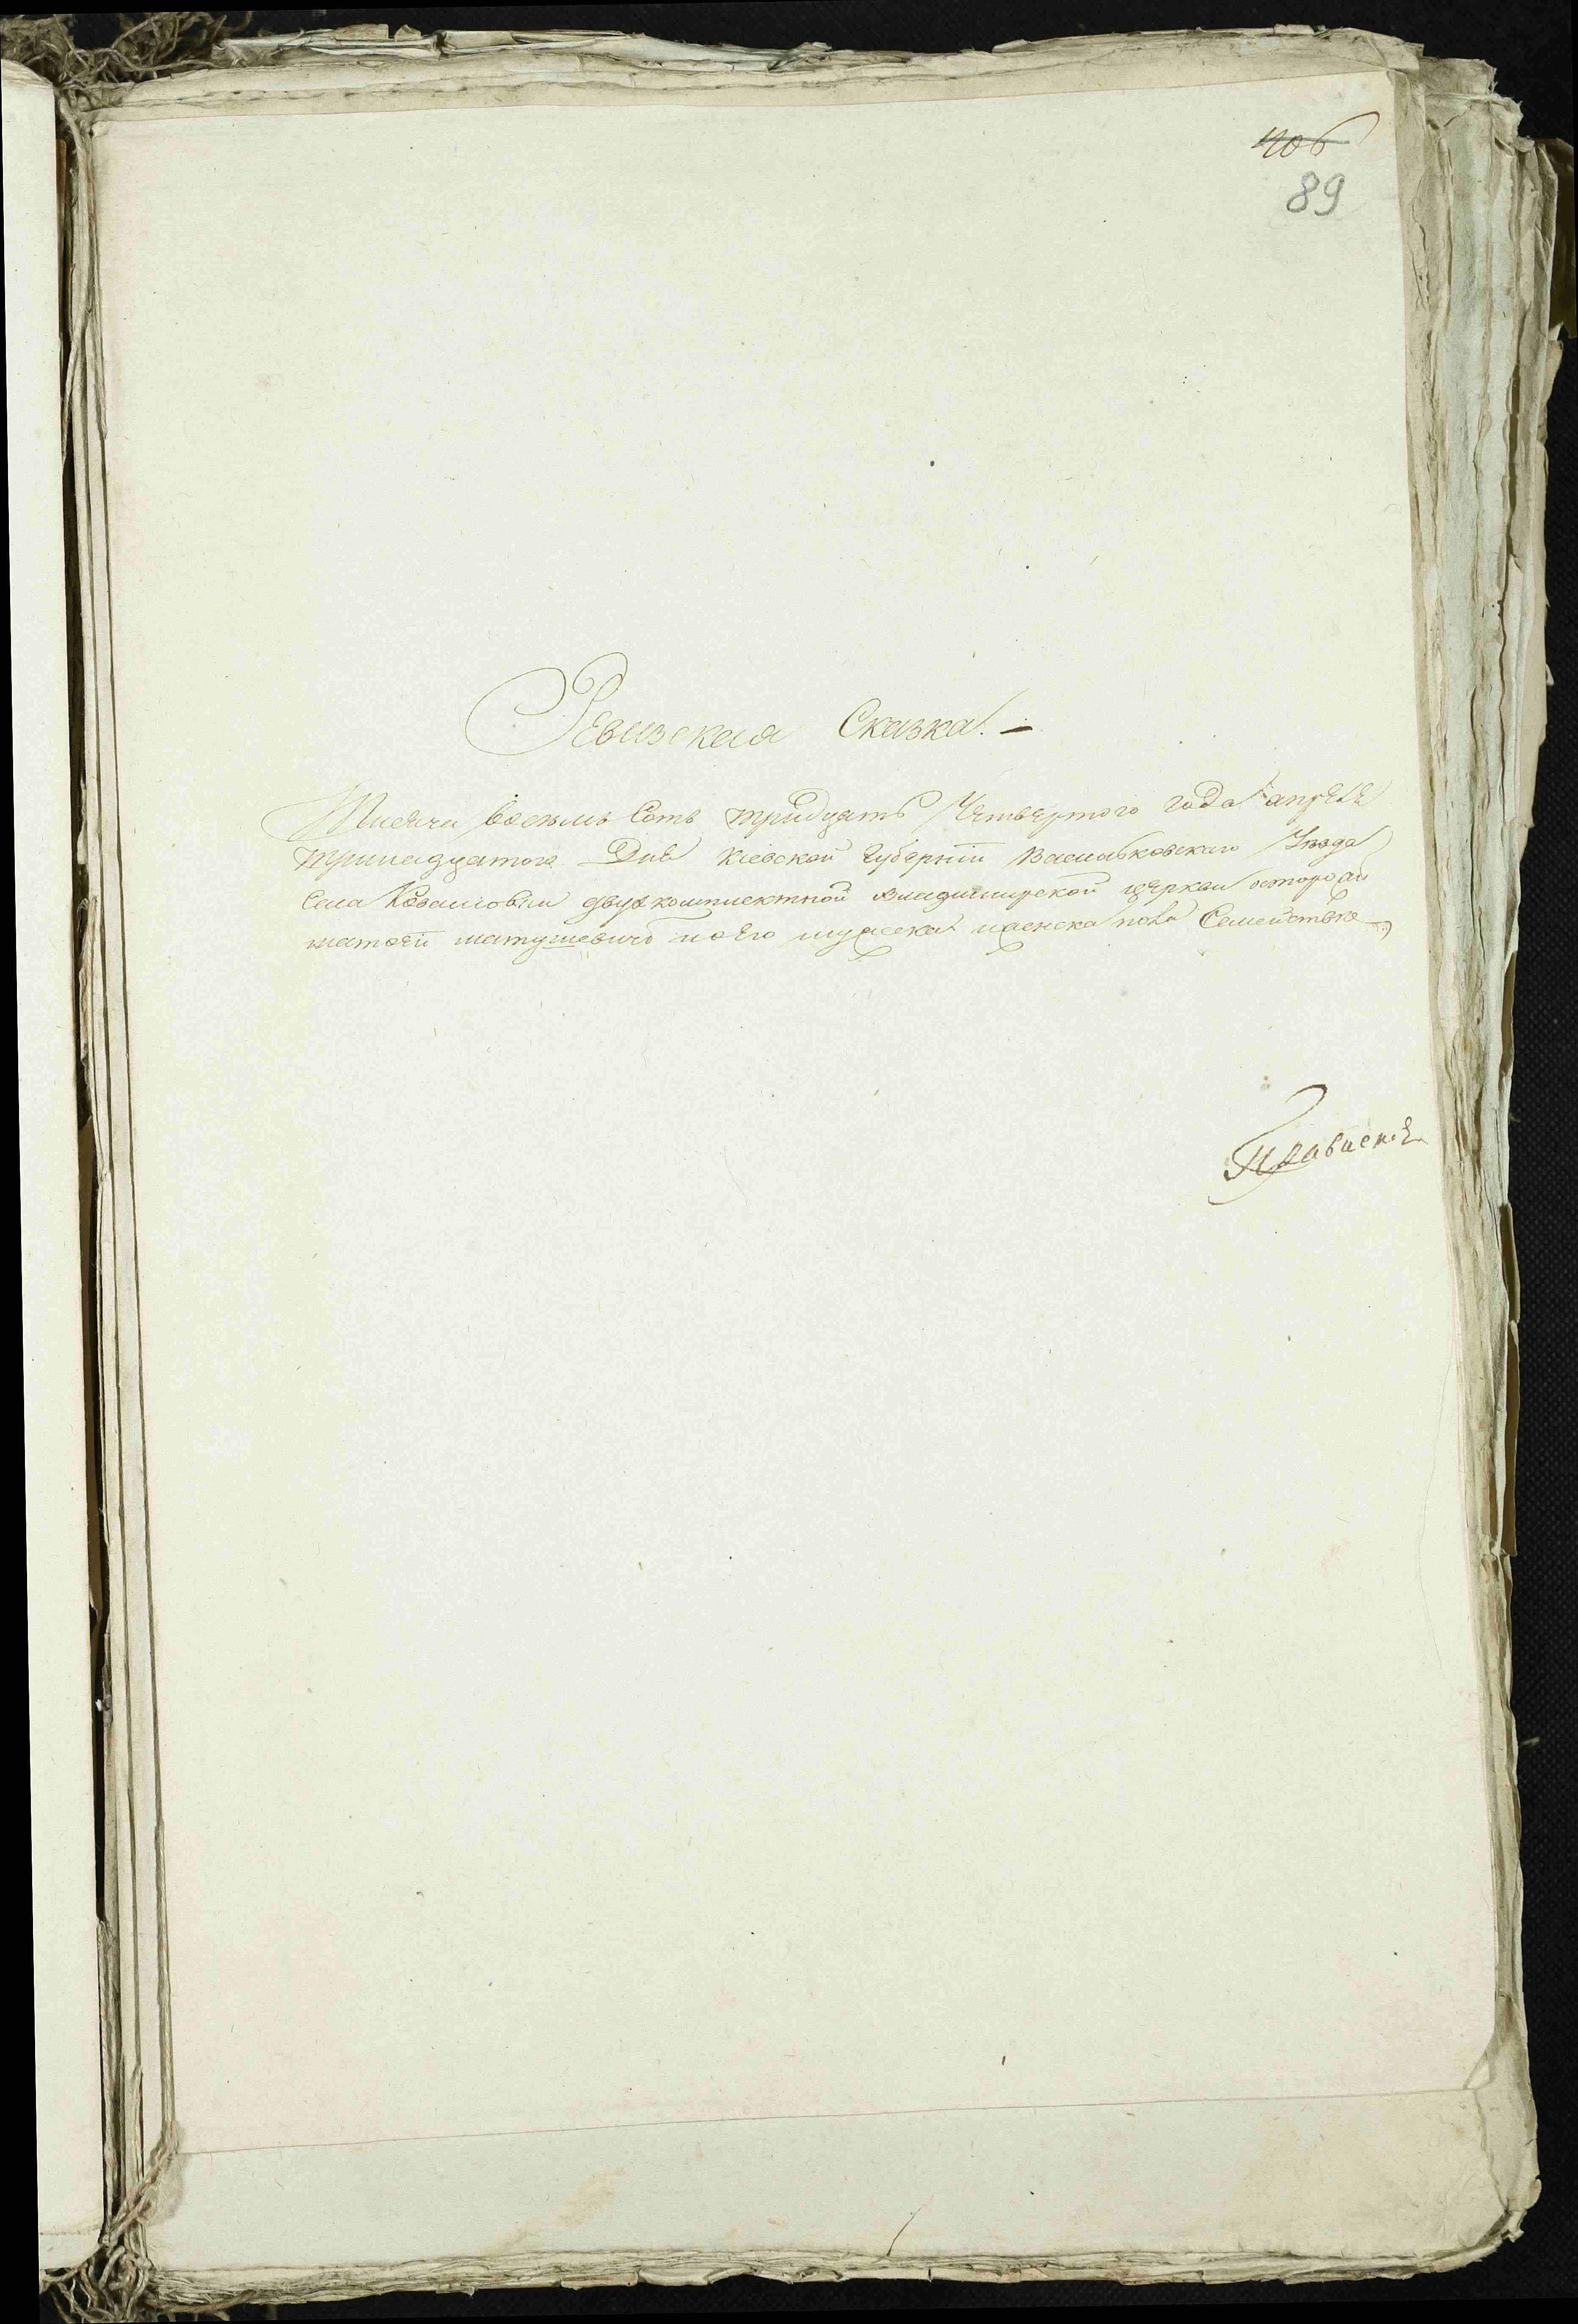 106
89
Ревизская Сказка. –
Тисяча восемь Сотъ тридцять Четвертого года апреля
тринадцатого Дня Кіевской Губерніи Васильковскаго Уезда
Села Ковалювки двухкомплектной Владимирской церкви
матвей матушевичъ и о его мужеска и женска пола Семействе